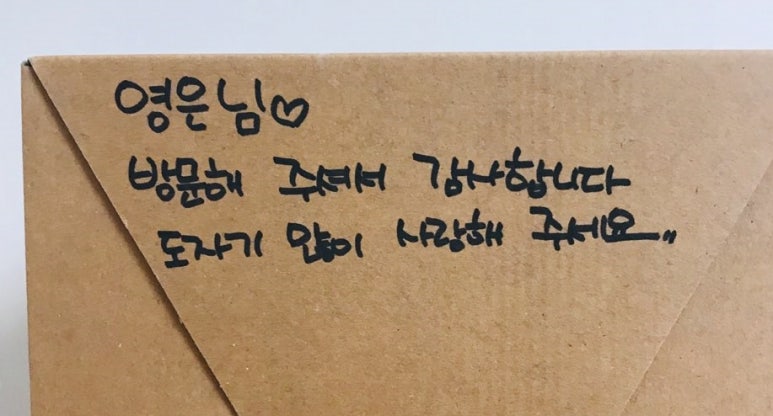 영은님♡
방문해 주셔서 감사합니다
도자기 많이 사랑해 주세요..